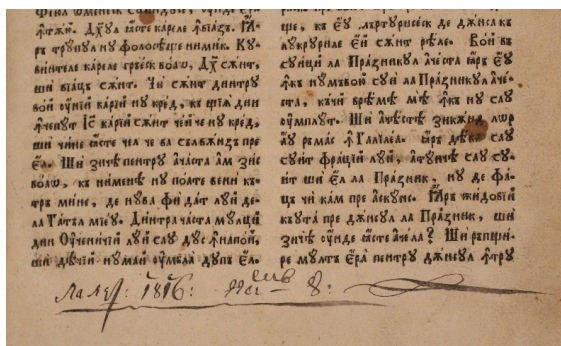 ꙟтѫй. Дх҃ꙋл ꙗсте кареле ꙟвїазъ. Тꙋ-
рꙋпꙋл нꙋ фолосѣще нимик. Кꙋ-
винтеле кареле грѣеск воаѡ, Дх҃ сѫнт,
ши вїацъ сѫнт. Чи сѫнт динтрꙋ
вой ѹнїй карїй нꙋ кред, къ щїа дин
ꙟчепꙋт Іс҃ карїй сѫнт чей че нꙋ кред,
ши чине ꙗсте чел че ва сълвѫнзъ пре
Єл. Ши зичѣ пентрꙋ ачаста ам зис
воаѡ, къ нименѣ нꙋ поате вени къ-
тръ мине, де нꙋва фи дат лꙋй де-
ла Татъл мїеꙋ. Динтрачаста мꙋлци
дин Оу҆ченичїй лꙋй саꙋ дꙋс ꙟнапой,
ши дѣчїй нꙋмай ѹмбла дꙋпъ Єл.
ше, къ Єꙋ мъртꙋрисеск де джнса къ
лꙋкрꙋриле Єй сѫнт рѣле. Вой въ
сꙋици ла Празникꙋл ачеста ꙗръ Єꙋ
ꙟкъ нꙋмъвой сꙋи ла Празникꙋл аче-
ста, къчи врѣмѣ мѣ ꙟкъ нꙋ саꙋ
ѹмплꙋт. Ши ачѣстѣ зикѫнд лѡр
аꙋ ръмас ꙟ Галїлеа. ꙗръ дѣкъ саꙋ
сꙋит фрацїй лꙋй, атꙋнчѣ саꙋ сꙋ-
ит ши Єл ла Празник, нꙋ де фа-
цъ чи кам пре аскꙋнс. Ꙗръ жидовїй
къꙋта пре джнсꙋл ла Празник, ши
зичѣ ѹнде ꙗсте ачела? Ши ръпщи-
ре мꙋлтъ Єра пентрꙋ джнсꙋл ꙟтрꙋ
1816: 8: